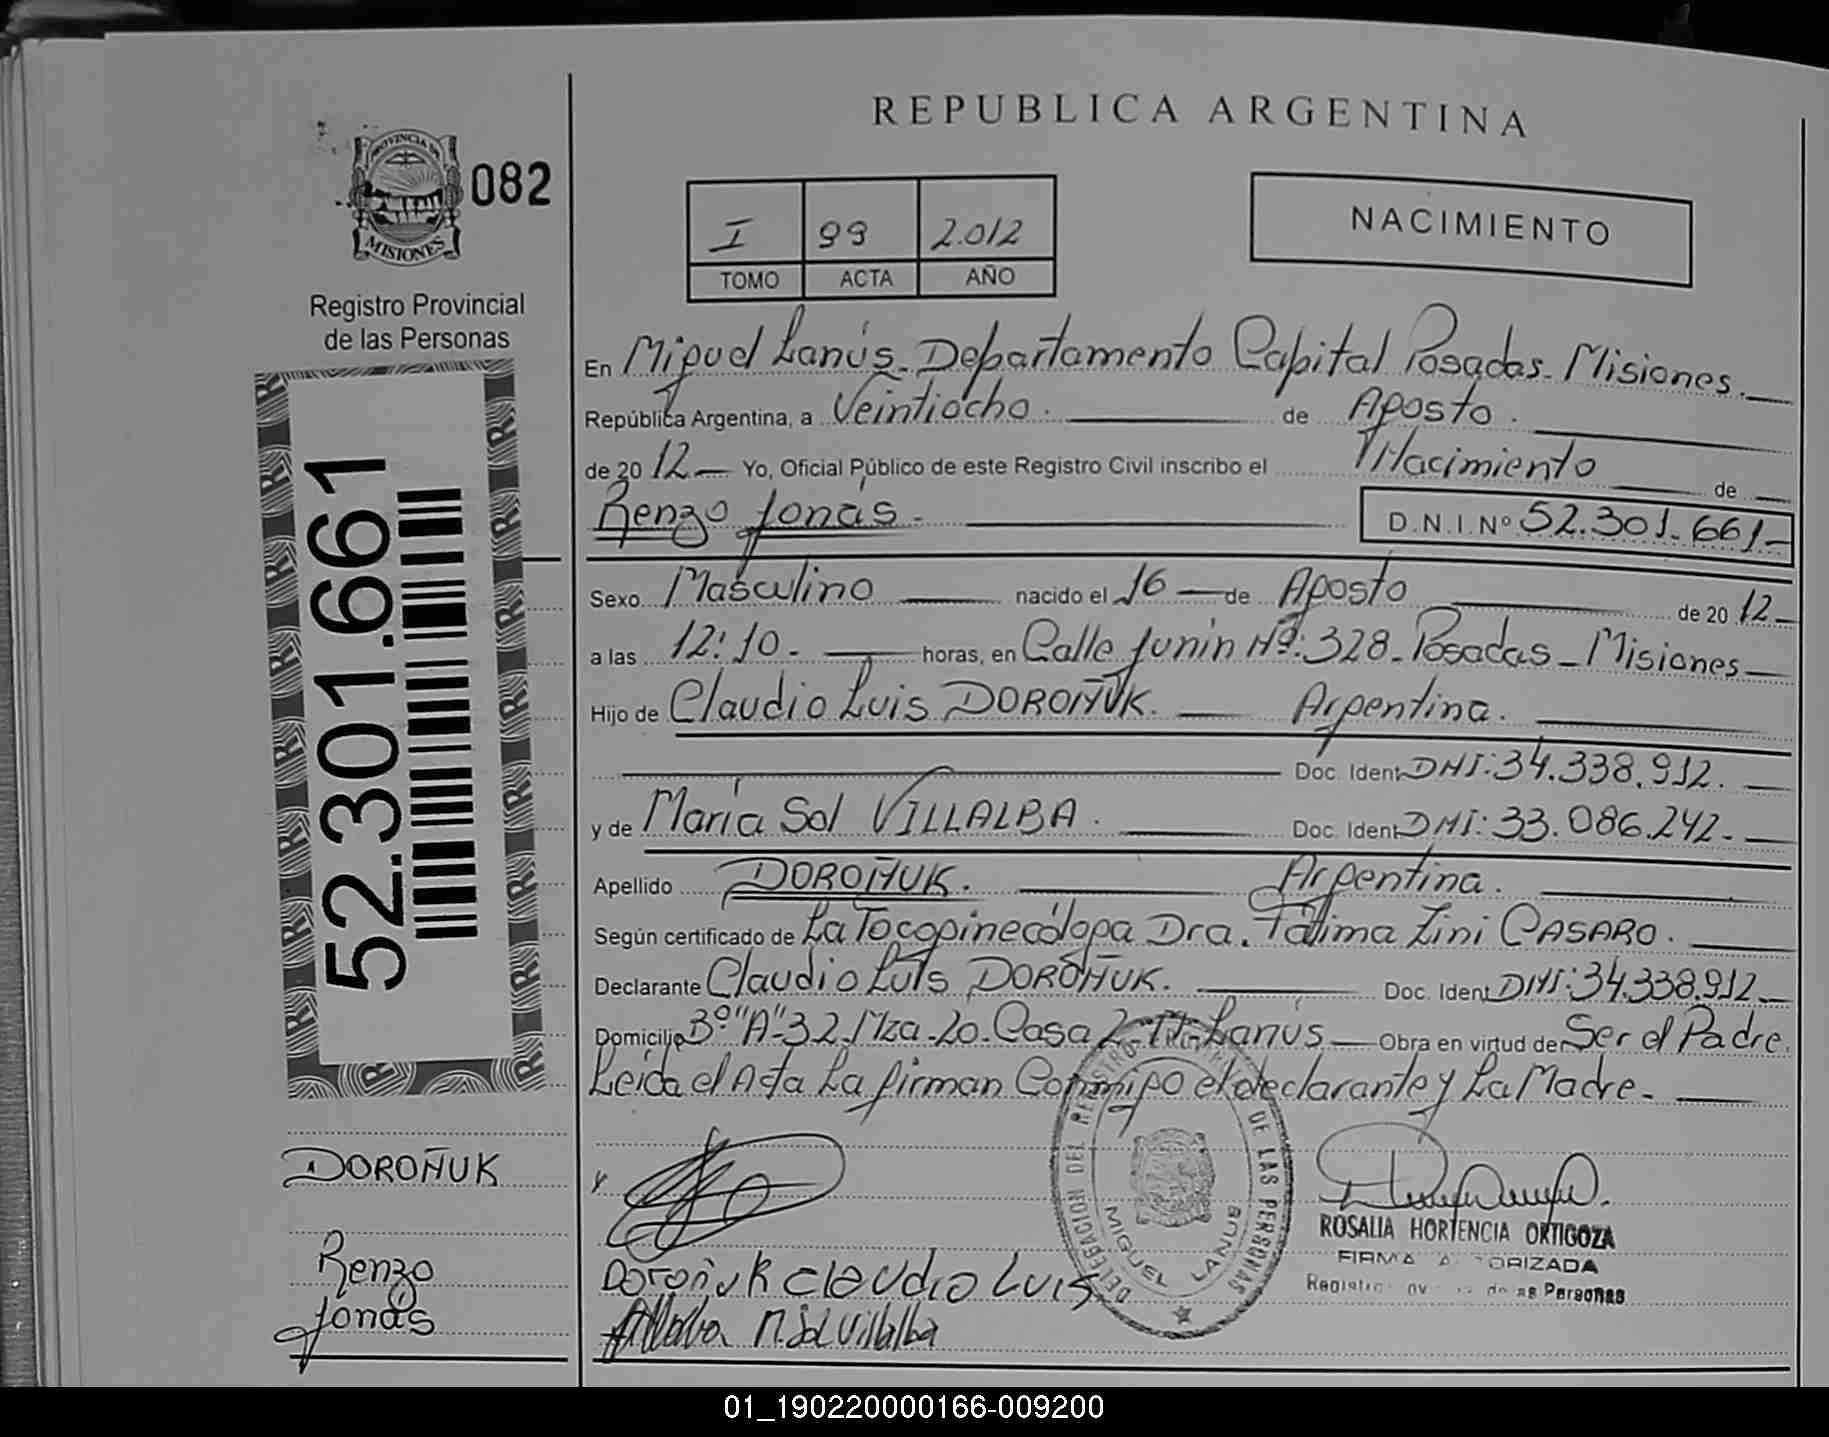 REPUBLICA ARGENTINA
PROVINCIA DE
MISIONES
082
Registro Provincial
de las Personas
I 99 2.012
TOMO ACTA AÑO
NACIMIENTO
En Miguel Lanús. Departamento Capital Posadas. Misiones.
República Argentina, a Veintiocho. de Agosto.
de 2012 Yo, Oficial Público de este Registro Civil inscribo el Nacimiento de
Renzo Jonás. D.N.I.Nº 52.301.661-
Sexo Masculino nacido el 16 de Agosto de 2012
a las 12:10. horas, en Calle Junín Nº:328. Posadas - Misiones
Hijo de Claudio Luis DOROÑUK. Argentina.
Doc. Ident DNI:34.338.912.
y de María Sol VILLALBA. Doc. Ident DNI:33.086.242.
Apellido DOROÑUK. Argentina.
Según certificado de La Tocoginecóloga Dra. Fátima Zini CASARO.
Declarante Claudio Luis DOROÑUK. Doc. Ident DNI:34.338.912
Domicilio Bº "A"-32. Mza. 20. Casa 2. Lanús Obra en virtud de Ser el Padre.
Leída el Acta La firman Conmigo el declarante y La Madre.
52.301.661
DOROÑUK
Renzo
Jonás
Doroñuk Claudio Luis
M. Sol Villalba
DELEGACION DEL REGISTRO DE LAS PERSONAS
MIGUEL LANUS
ROSALIA HORTENCIA ORTIGOZA
FIRMA AUTORIZADA
Personas
01_190220000166-009200